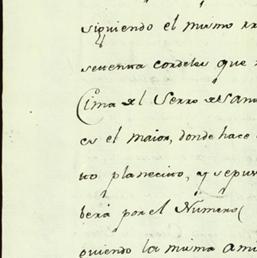 siguiendo el mismo
setenta cordeles que
Cima del Serro de San
es el maior, donde hace
to planecito, y se pu
berá por el Numero
guiendo la misma